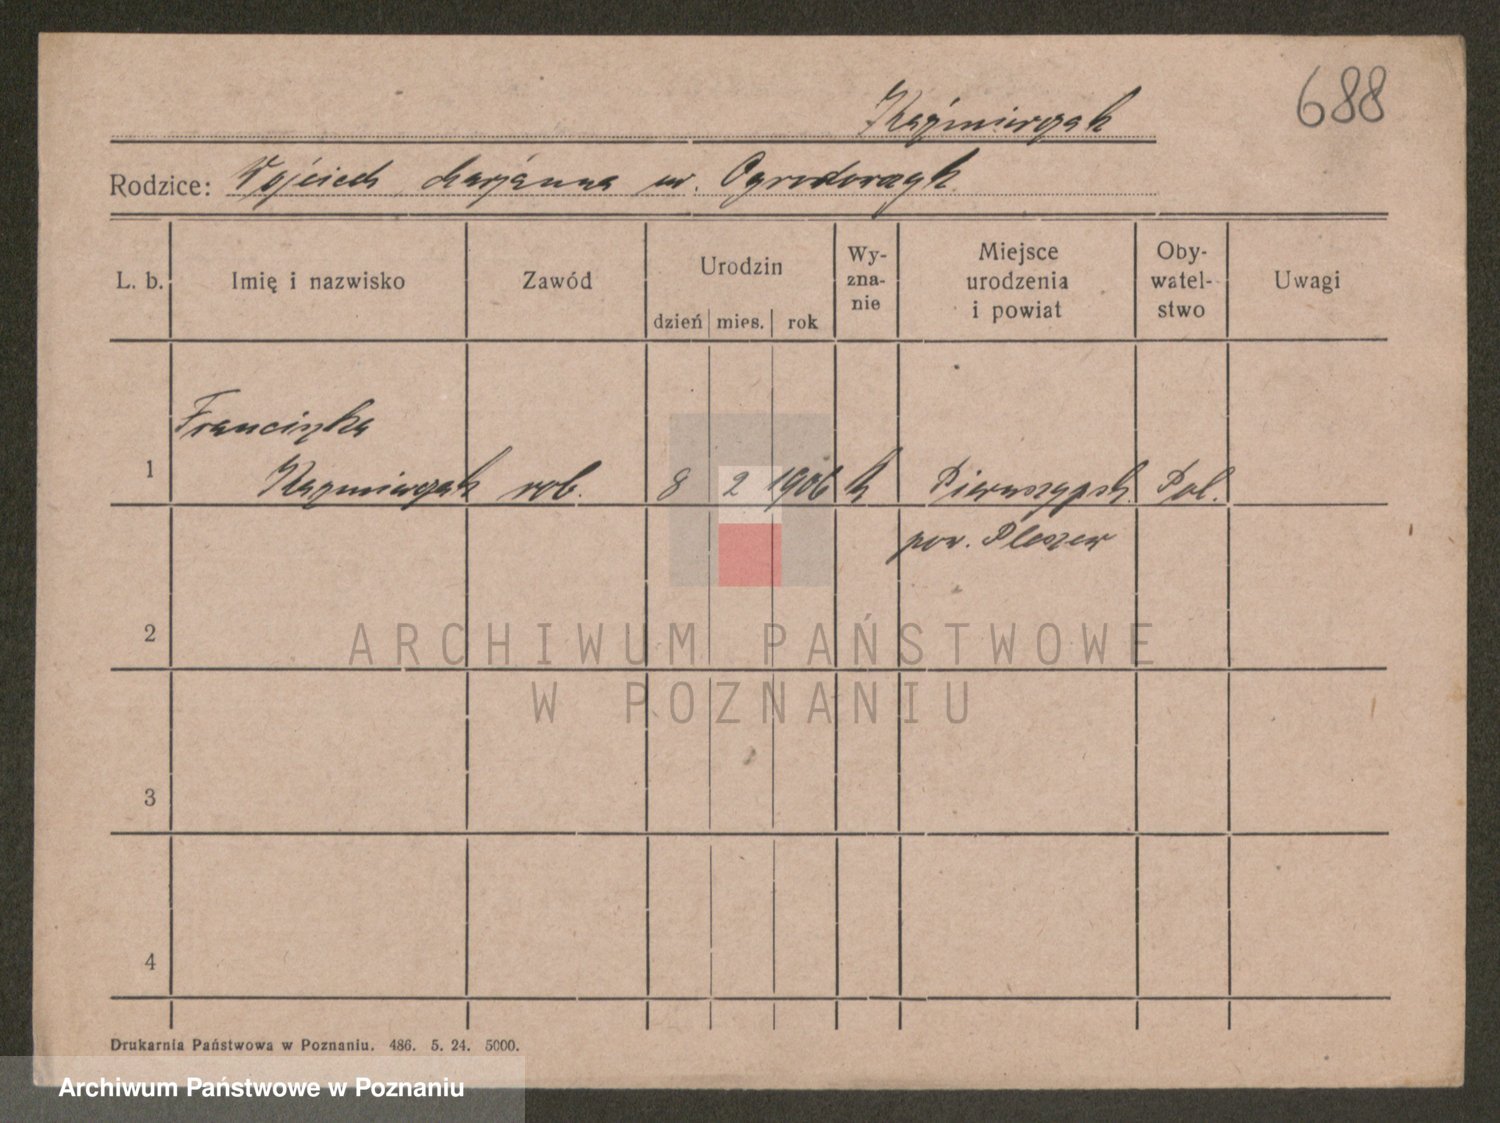 688
Kaźmierczak
Rodzice: Wojciech Marjanna ur. Ogrodowczyk
L. b. Imię i nazwisko Zawód Urodzin dzień mies. rok Wy-zna-nie Miejsce urodzenia i powiat Oby-watel-stwo Uwagi
Franciszka
1 Kaźmierczak rob. 8 2 1906 k Pieruszyck. Pol.
pow. Pleszew
2
3
4
ARCHIWUM PAŃSTWOWE
W POZNANIU
Drukarnia Państwowa w Poznaniu. 486. 5. 24. 5000.
Archiwum Państwowe w Poznaniu